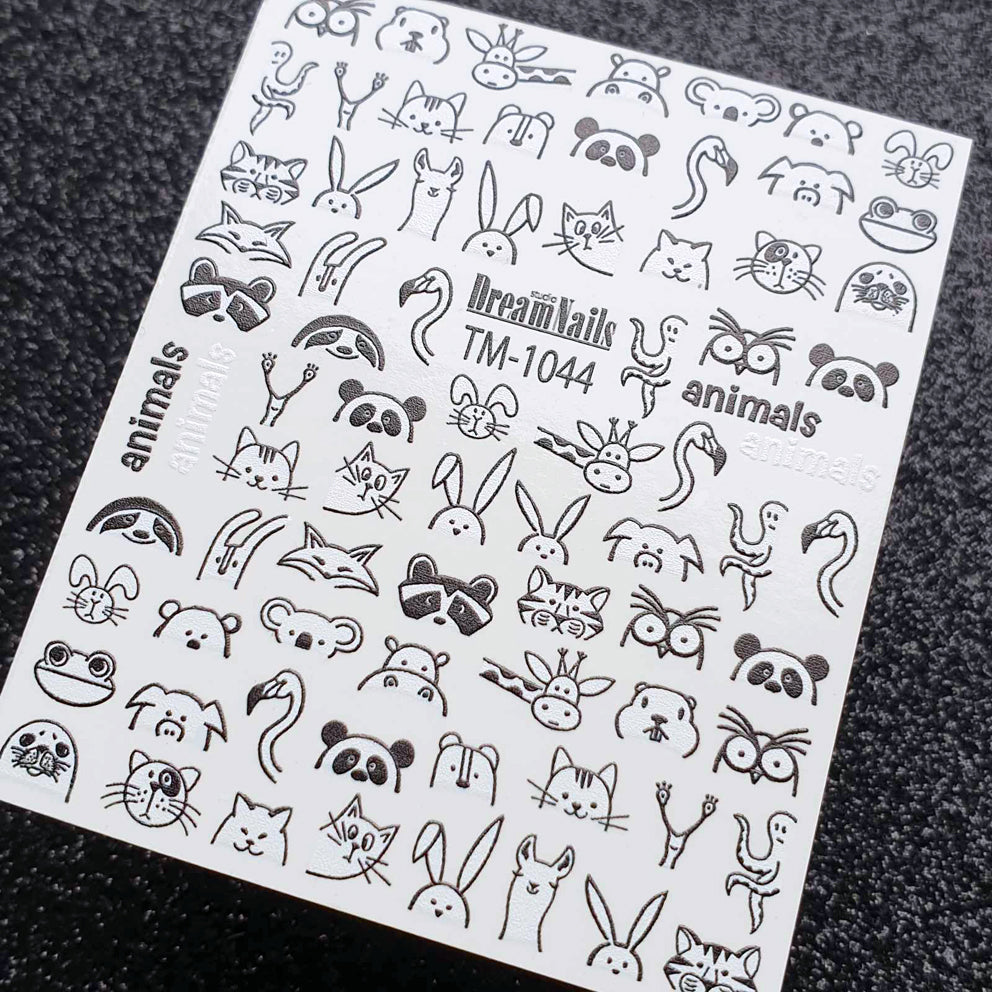 studio
DreamNails
TM-1044
animals
animals
animals
animals